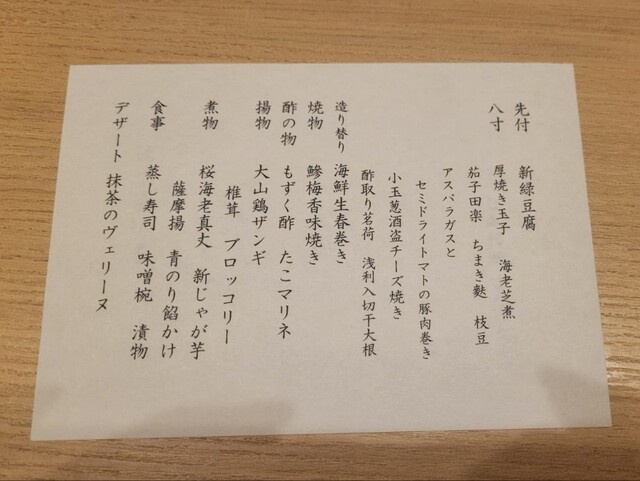 先付　新緑豆腐
八寸　厚焼き玉子　海老芝煮
茄子田楽　ちまき麩　枝豆
アスパラガスと
セミドライトマトの豚肉巻き
小玉葱酒盗チーズ焼き
酢取り茗荷　浅利入切干大根
造り替り　海鮮生春巻き
焼物　鰺梅香味焼き
酢の物　もずく酢　たこマリネ
揚物　大山鶏ザンギ
椎茸　ブロッコリー
煮物　桜海老真丈　新じゃが芋
薩摩揚　青のり餡かけ
食事　蒸し寿司　味噌椀　漬物
デザート　抹茶のヴェリーヌ